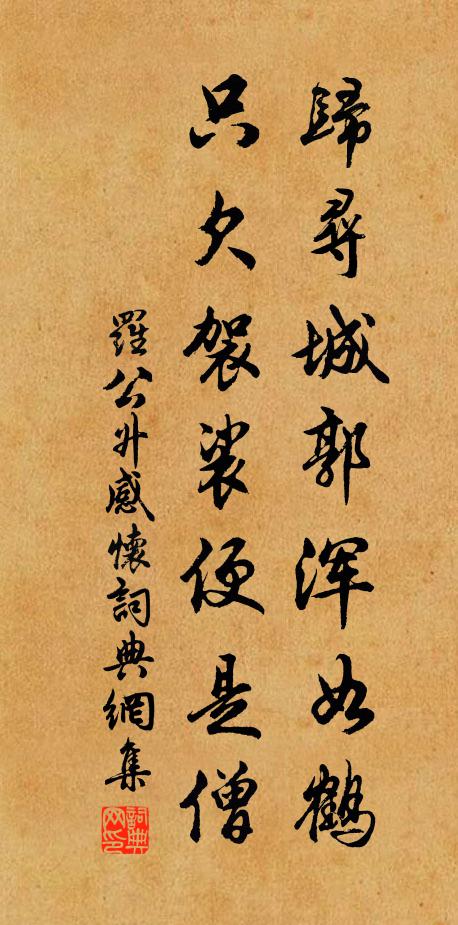 歸尋城郭渾如鶴
只欠袈裟便是僧
羅公升感懷詞典網集
詞典網印